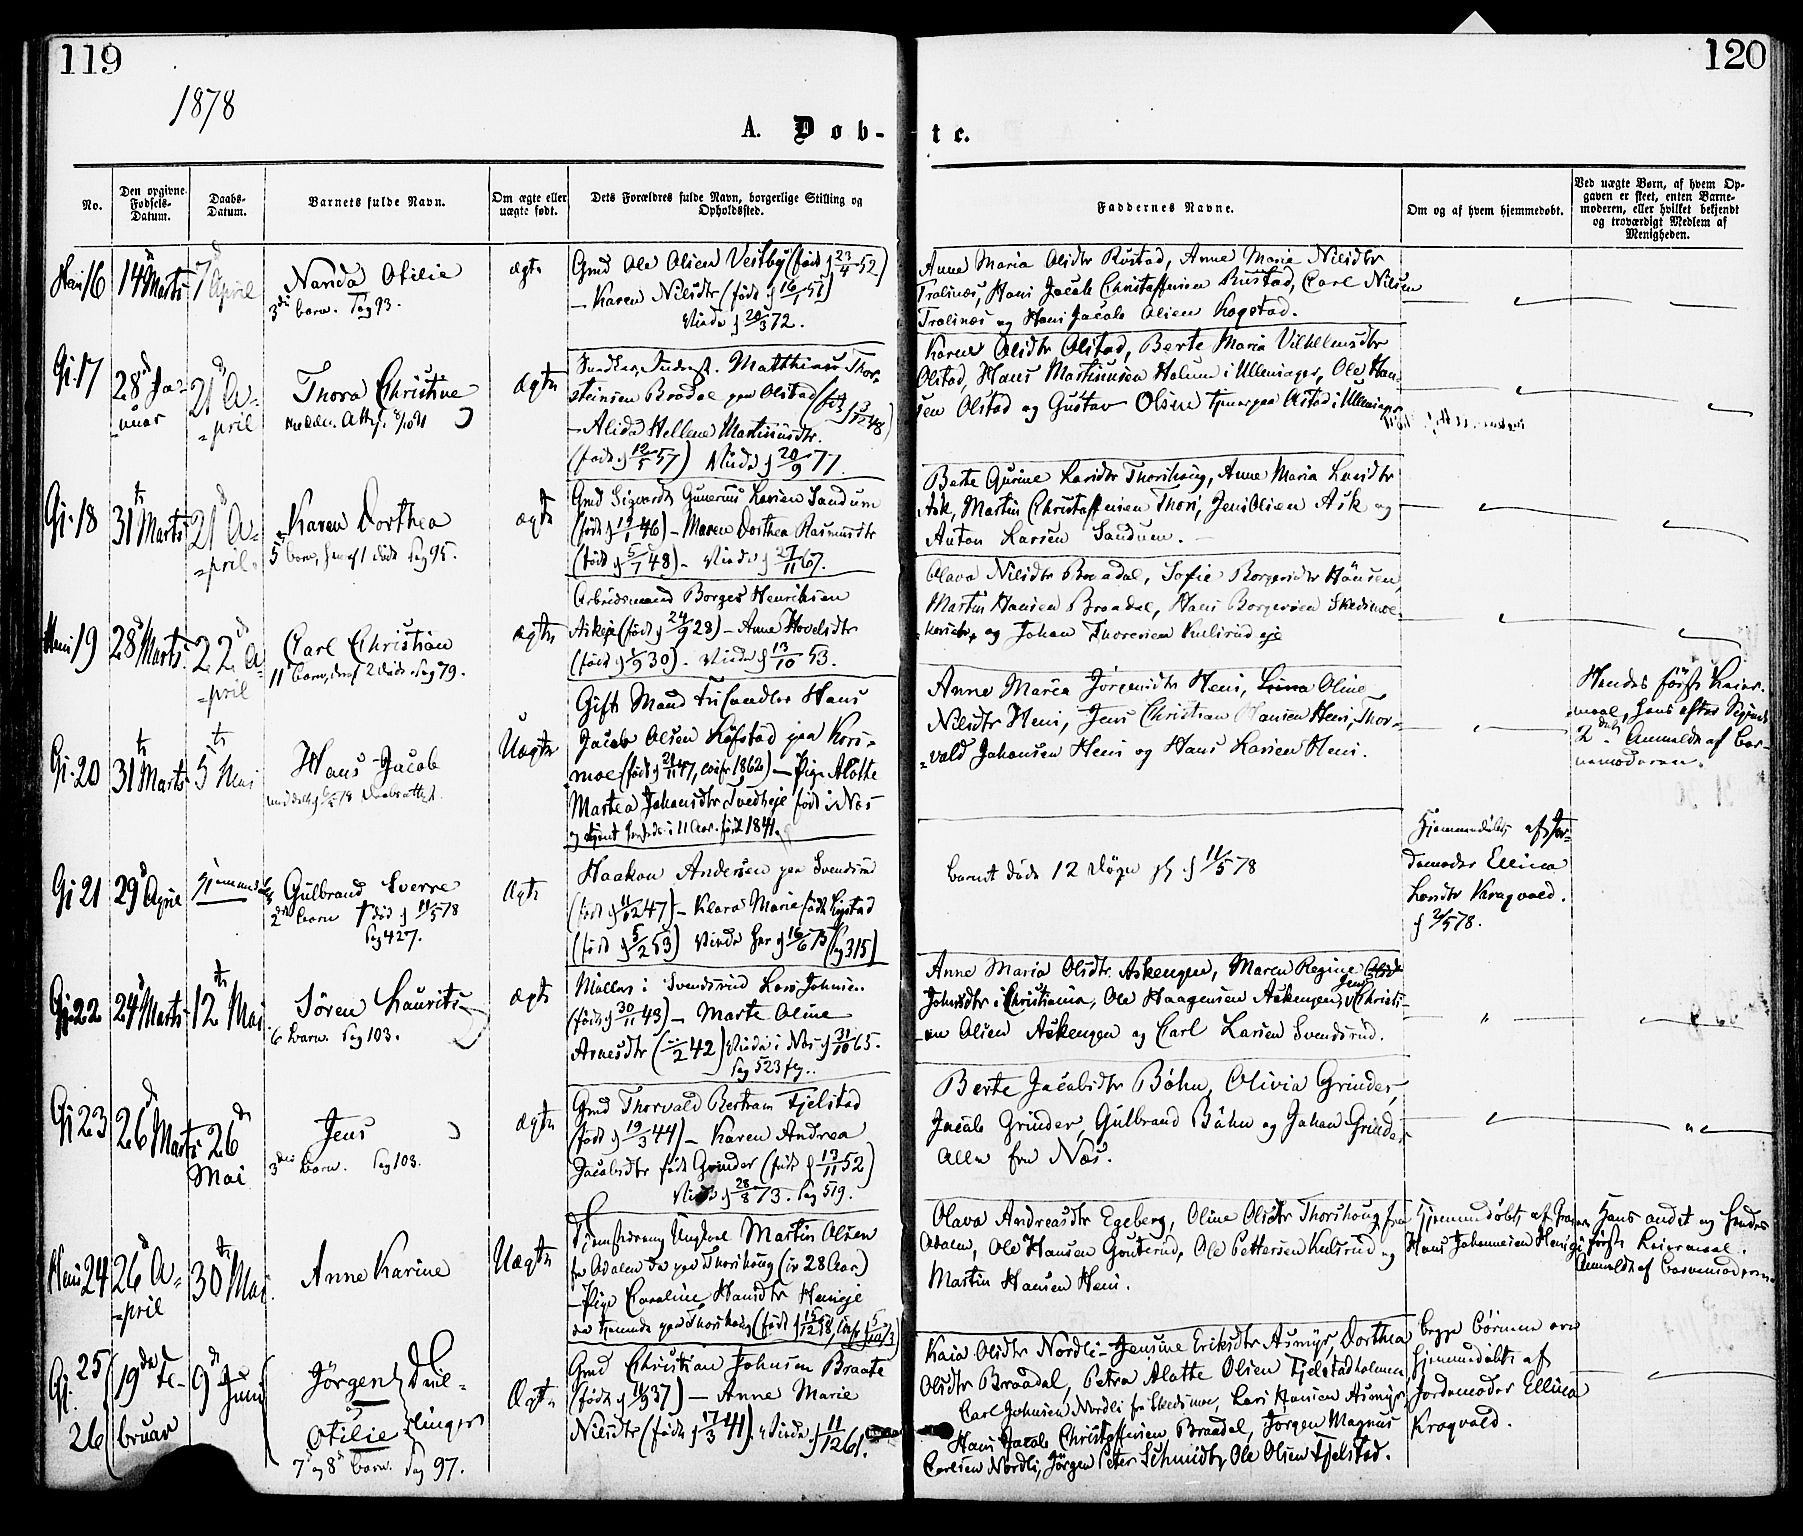 119
120
1878
A. Døb-
te.
No.
Den opgivne Fødsels-Datum.
Daabs-Datum.
Barnets fulde Navn.
Om ægte eller uægte født.
Dets Forældres fulde Navn, borgerlige Stilling og Opholdssted.
Faddernes Navne.
Om og af hvem hjemmedøbt.
Ved uægte Børn, af hvem Opgaven er skeet, enten Barnemoderen, eller hvilket bekjendt og troværdigt Medlem af Menigheden.
16
14 Marts
7 April
Nanda Otilie
3die barn. Pag 93.
ægte
Gmd Ole Olsen Vestby (født d 23/4 52)
- Karen Nilsdtr (født d 16/1 51)
Viede d 20/3 72.
Anne Maria Olsdtr Rustad, Anne Marie Nilsdtr
Tralinæs, Hans Jacob Christoffersen Rustad, Carl Nilsen
Tralinæs og Hans Jacob Olsen Kogstad.
Gj. 17
28 Januar
21 April
Thora Christine
ægte
Matthias Thor-
steinsen Braadal paa Olstad
- Alida Hellene Martinusdtr.
(født d 12/5 57) Viede d 20/9 77.
Karen Olsdtr Olstad, Berte Maria Vilhelmsdtr
Olstad, Hans Martinusen Holum i Ullensager, Ole Han-
sen Olstad og Gustav Olsen tjener paa Olstad i Ullensager
Gj. 18
31 Marts
21 April
Karen Dorthea
5te barn, hvoraf 1 død. Pag 95.
ægte
Gmd Sigvardt Gunerius Larsen Sandum
(født d 19/1 46) - Maren Dorthea Rasmusdtr
(født d 5/7 48) - Viede d 27/11 67.
Berte Gurine Larsdtr Thorshoug, Anne Maria Larsdtr
Ask, Martin Christoffersen Thori, Jens Olsen Ask og
Anton Larsen Sandum.
19
28 Marts
22 April
Carl Christian
11 barn, deraf 2 døde. Pag 79.
ægte
Arbeidsmand Borger Henriksen
Askeje (født d 24/9 28) - Anne Hovelsdtr
(født 30). Viede d 13/10 53.
Olava Nilsdtr Braadal, Sofie Borgersdtr Hansen,
Martin Hansen Braadal, Hans Borgersen Skedsmoe
og Johan Thoresen Kulsrud eje
Gj. 20
31 Marts
5 Mai
Hans Jacob
Uægte
Gift Mand Hans
Jacob Olsen Lofstad paa Kors-
moe
Martea Johansdtr født i Næs
Anne Maria Jørgensdtr Heni, Oline
Nilsdtr Heni, Jens Christian Hansen Heni, Thor-
vald Johansen Heni og Hans Larsen Heni.
Hendes første Leier-
maal, hans efter
2det. Anmeldt af Bar-
nemoderen.
Gj 21
29 April
Hjemmedøbt
Gulbrand Sverre
2det barn † død d 11/5 78
Pag 427.
ægte
Haakon Andersen paa Svendsrud
- Klara Marie født Kogstad
(født d 5/2 53) Viede her d 16/6 75 (Pag 315)
barnet døde 12 Døgn gl. d 11/5 78
Hjemmedøbt af Jor-
demoder Ellina
Larsdtr Kragvold.
Gj. 22
24 Marts
12 Mai
Søren Laurits
6 barn. Pag 103.
ægte
Møller i Svendsrud Lars Johnsen
(født d 30/11 43) - Marte Oline
Arnesdtr Viede i Næs d 31/10 65.
Pag 523
Anne Maria Olsdtr. Askengen, Maren Regine
Johnsdtr i Christiania, Ole Haagensen Askengen, Jens Christi-
an Olsen Askengen og Carl Larsen Svendsrud.
Gj 23
26 Marts
26 Mai
Jens
3die barn. Pag 103.
ægte
Gmd Thorvald Bertram Fjelstad
(født d 19/3 44) - Karen Andrea
Jacobsdtr født Grinder (født d 13/11 52)
Viede d 28/8 73. Pag 519.
Berte Jacobsdtr Bøhn, Olivia Grinder,
Jacob Grinder, Gulbrand Bøhn og Johan Grinder
Alle fra Næs.
24
26 April
30 Mai
Anne Karine
Uægte
Ungkarl Martin Olsen
fra Odalen da paa Thorshoug (ca 28 Aar)
- Pige Caroline Hansdtr Henieje
da tjenende paa Thorshoug
Olava Andreasdtr Egeberg, Oline Olsdtr Thorshoug, fra
Odalen, Ole Hansen Gouterud, Ole Pettersen Kulsrud og
Martin Hansen Heni.
Hjemmedøbt af
Hans Johannesen
Hans andet og hendes
første Leiermaal.
Anmeldt af Barnemoderen
Gj. 25
26
19de Februar
9 Juni
Jørgen
&
Otilie
Tvil-
linger
7 og 8 barn. Pag 97.
Ægte
Gmd Christian Johnsen Braate
- Anne Marie
Nilsdtr (født d 17/3 41). Viede d 11/12 61.
Kaia Olsdtr Nordli - Jensine Eriksdtr Asmyr, Dorthea
Olsdtr Braadal, Petra Alotte Olsen Fjelstadholmen
Carl Johnsen Nordli fra Skedsmoe, Lars Hansen Asmyr,
Hans Jacob Christoffersen Braadal, Jørgen Magnus
Carlsen Nordli, Jørgen Peter Schmidt, Ole Olsen Fjelstad.
begge Børnene ere
hjemmedøbt af
Jordemoder Ellina
Kragvold.